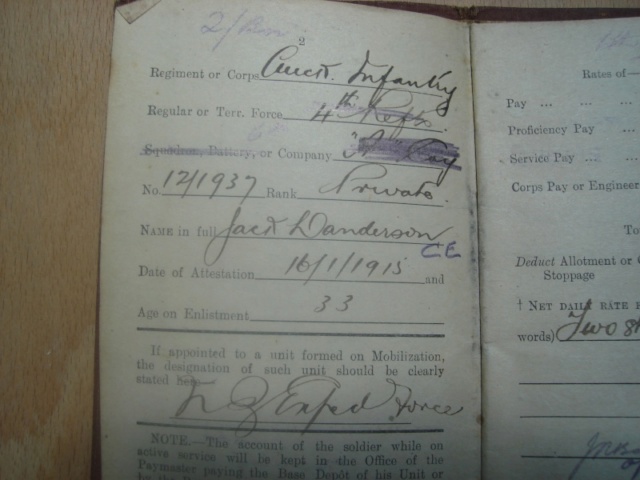 2/Bn
2
Regiment or Corps Auckd. Infantry
Regular or Terr. Force 4th Refts.
Squadron, Battery, or Company
No. 12/1937 Rank Private.
NAME in full Jack Danderson
CE
Date of Attestation 16/1/1915 and
Age on Enlistment 33
If appointed to a unit formed on Mobilization,
the designation of such unit should be clearly
stated here
N Z Exped Force
NOTE.—The account of the soldier while on
active service will be kept in the Office of the
Paymaster paying the Base Depôt of his Unit or
Rates of
Pay ... ...
Proficiency Pay ...
Service Pay ... ...
Corps Pay or Engineer
To
Deduct Allotment or
Stoppage
† NET DAILY RATE
words) Two